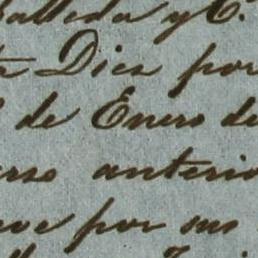 alleda y C.
Dice por
de Enero de
rso anterio
por sus